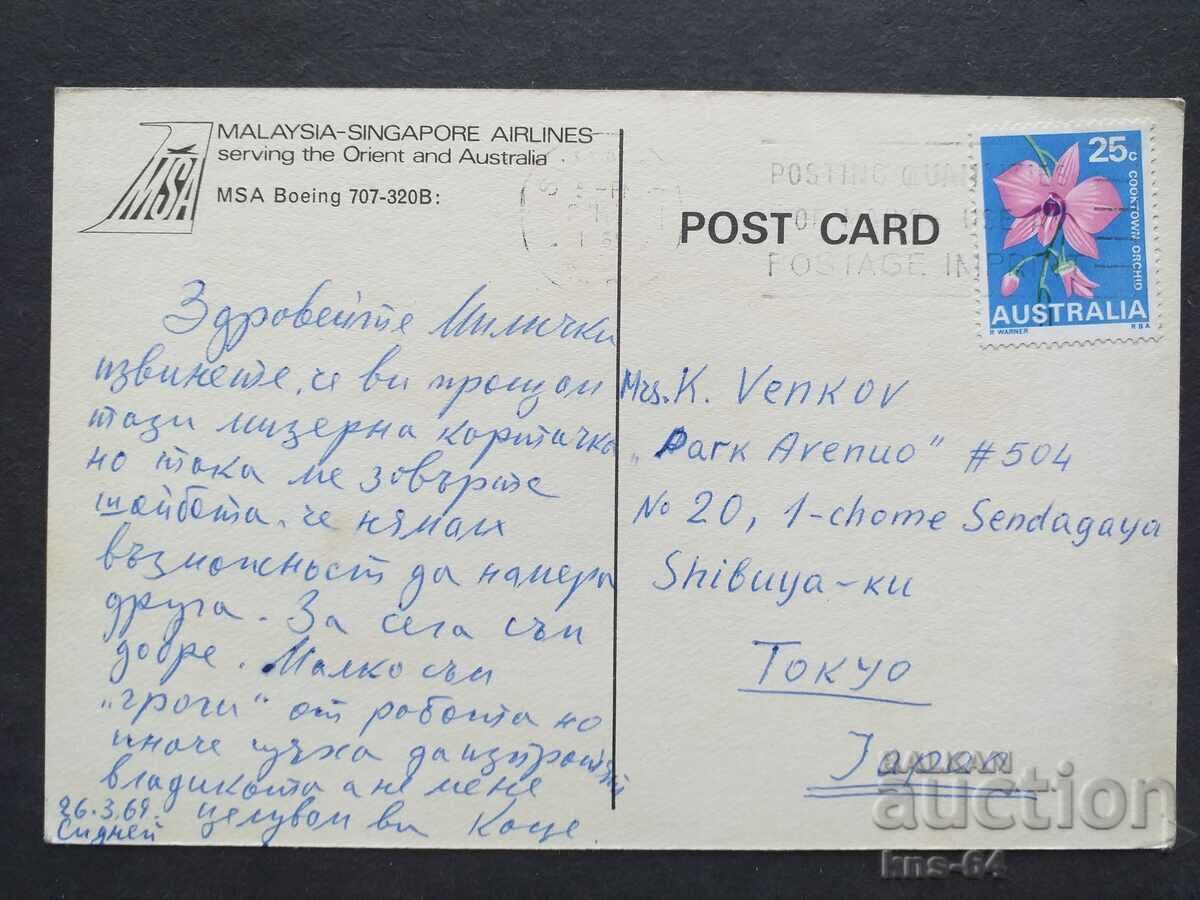 MALAYSIA-SINGAPORE AIRLINES
serving the Orient and Australia
MSA
MSA Boeing 707-320B:
Здравейте Милички
извинете, че ви пращам
тази мизерна картичка
но така ме завърте
шайбата, че нямам
възможност да намеря
друга. За сега съм
добре. Малко съм
"гроги" от работа но
иначе щяха да изпратят
владиката а не мене
целувам ви Коце.
26.3.69.
Сидней
POSTING QUANTITIES
USE
POSTAGE IMPRI
POST CARD
25c
COOKTOWN ORCHID
AUSTRALIA
R WARNER
R B A
Mrs. K. Venkov
„Park Avenuo" #504
No 20, 1-chome Sendagaya
Shibuya-ku
Tokyo
Japan
BALKAN
auction
kns-64